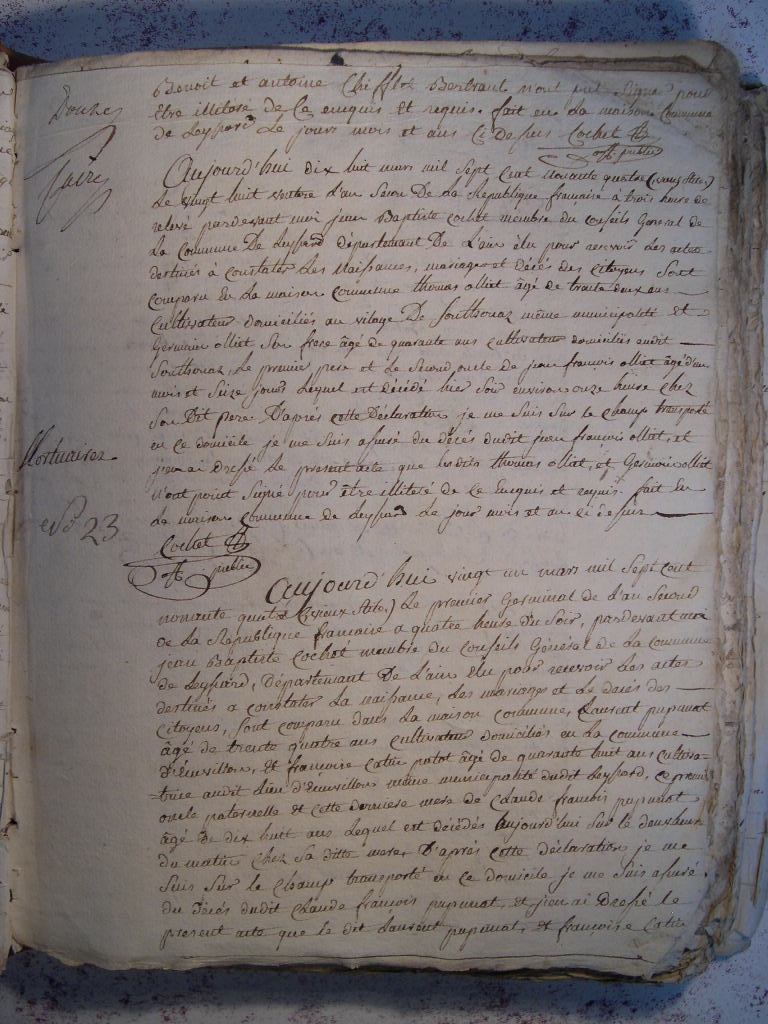 Benoit et antoine Chifflet Bertrand n'ont pas signé pour
Douze
Etre illitéré de Ce enequis et requis. fait en La maison Commune
de Leyssard Le jours mois et ans Ci Dessus Cochet
public
paire
Aujourd'hui dix huit mars mil Sept Cent nonante quatre (vieux stile.)
Le vingt huit ventose d'an Second De La République francaise à trois heure de
relevé pardevant moi jean Baptiste Cochet membre du Conseils General de
La Commune De Leyssard département De L'ain élu pour recevoir Les actes
destinés à Constater Les Naissances, mariages et Décés des Citoyens Sont
Comparu En La maison Commune thomas olliet âgé de trente deux ans
Cultivateur domiciliés au vilage De Soulthonax même municipalité et
Germain olliet Son frere âgé de quarante ans Cultivateur domiciliés audit
Soulthonax Le premier pere et Le Second oncle de jean françois olliet âgé d'un
mois et Seize jours Lequel est décédé hier Soir environ onze heure Chez
Son Dit pere. D'aprés cette Déclaration je me Suis Sur Le champ transporté
en ce domicile je me Suis assuré du Décés dudit jean françois olliet, et
Mortuaires
j'en ai Dressé Le present acte que Lesdits thomas olliet, et Germain olliet
N'ont point Signé pour être illitéré de Ce Enequis et requis. fait En
La maison Commune de Leyssard Le jour mois et an ci dessus
No 23
Cochet
public
Aujourd'hui vingt un mars mil Sept Cent
nonante quatre (vieux stile.) Le premier Germinal de L'an Second
de La République francaise a quatre heure Du Soir, pardevant moi
jean Baptiste Cochet membre du Conseils Général de La Commune
de Leyssard, Département De L'ain Elu pour recevoir Les actes
destinés a constater La naissance, Les mariages et Le décés des
Citoyens, Sont comparu dans La maison Commune, Laurent pupunat
âgé de trente quatre ans Cultivateur domiciliés en La commune
d'Esnvillon, Et françoise Catin patot âgé de quarante huit ans Cultiva-
trice audit Lieu d'Esnvillon même municipalité dudit Leyssard, ce premier
oncle paternelle et cette derniere mere de Claude françois pupunat
âgé De dix huit ans Lequel est décédés Aujourd'hui Sur le deux heure
du matin Chez Sa ditte mere, D'aprés cette déclaration je me
Suis Sur Le Champ transporté en ce domicile je me Suis assuré
du Décés dudit Claude françois pupunat, et j'en ai Dressé Le
present acte que Le dit Laurent pupunat, et françoise Catin